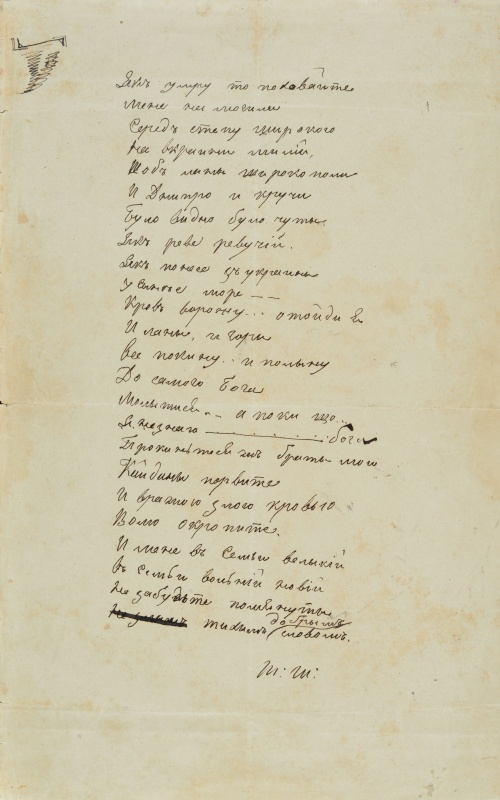 Якъ умру то поховайте
Мене на могили
Середъ степу широкого
На вкраини милій,
Щобъ ланы широкополи
И Днипро и кручи
Було видно було чуты
Якъ реве ревучій.
Якъ понесе зъ украины
У синье море
Кровъ ворожу... отойди я
И ланы, и горы
Все покину.. и полыну
До самого Бога
Молытися.. а поки що..
Я незнаю бога
Поховайте
Кайданы порвите
И вражою злою кровью
Волю окропите.
И мене въ семьи велыкій
Въ семьи вольній новій
Не забудьте помьянуты
тихимъ добрымъ словомъ.
Т: Ш: